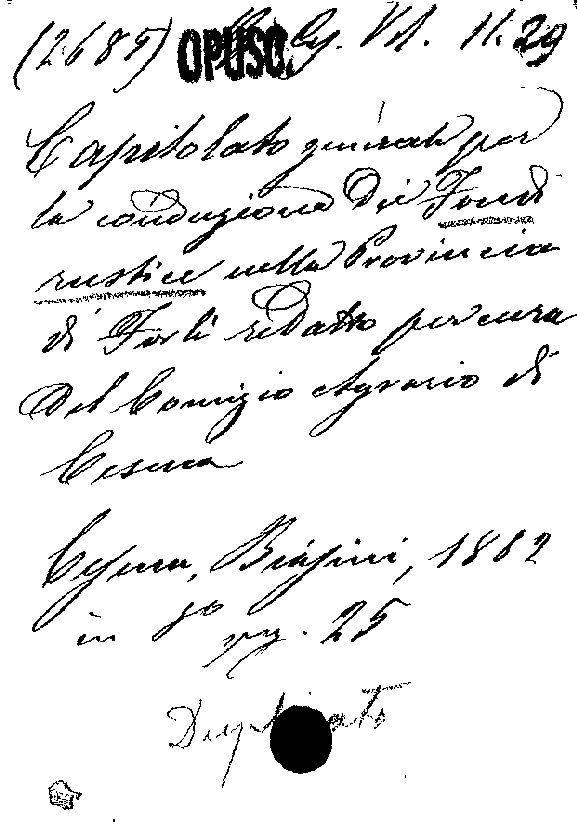 (2685) OPUSC. VI. 11. 29
Capitolato generale per
la conduzione dei Fondi
rustici nella Provincia
di Forlì redatto per cura
del Comizio Agrario di
Cesena
Cesena, Biasini, 1882
in 8º pg. 25
Duplicato